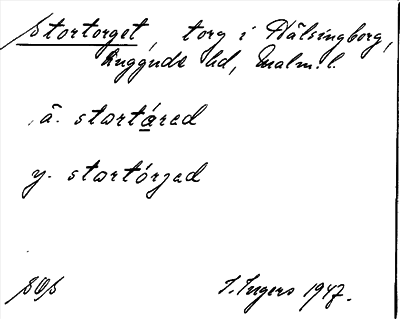 Stortorget, torg i Hälsingborg,
Luggude hd, Malm. l.
ä. startáred
y. startórjad
SOS
I. Ingers 1947.